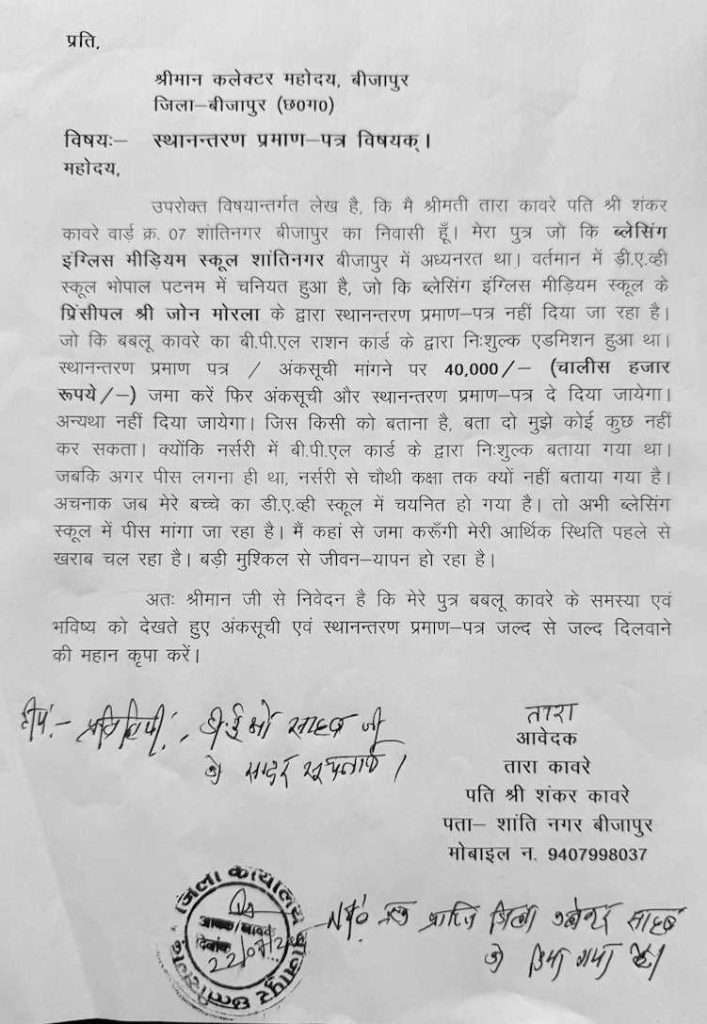 प्रति,
श्रीमान कलेक्टर महोदय, बीजापुर
जिला–बीजापुर (छ0ग0)
विषयः– स्थानन्तरण प्रमाण–पत्र विषयक्।
महोदय,
उपरोक्त विषयान्तर्गत लेख है, कि मै श्रीमती तारा कावरे पति श्री शंकर
कावरे वार्ड क्र. 07 शांतिनगर बीजापुर का निवासी हूँ। मेरा पुत्र जो कि ब्लेसिंग
इंग्लिस मीड़ियम स्कूल शांतिनगर बीजापुर में अध्यनरत था। वर्तमान में ड़ी.ए.व्ही
स्कूल भोपाल पटनम में चनियत हुआ है, जो कि ब्लेसिंग इंग्लिस मीड़ियम स्कूल के
प्रिंसीपल श्री जोन मोरला के द्वारा स्थानन्तरण प्रमाण–पत्र नहीं दिया जा रहा है।
जो कि बबलू कावरे का बी.पी.एल राशन कार्ड के द्वारा निःशुल्क एडमिशन हुआ था।
स्थानन्तरण प्रमाण पत्र / अंकसूची मांगने पर 40,000/– (चालीस हजार
रूपये/–) जमा करें फिर अंकसूची और स्थानन्तरण प्रमाण–पत्र दे दिया जायेगा।
अन्यथा नहीं दिया जायेगा। जिस किसी को बताना है, बता दो मुझे कोई कुछ नहीं
कर सकता। क्योंकि नर्सरी में बी.पी.एल कार्ड के द्वारा निःशुल्क बताया गया था।
जबकि अगर पीस लगना ही था, नर्सरी से चौथी कक्षा तक क्यों नहीं बताया गया है।
अचानक जब मेरे बच्चे का डी.ए.व्ही स्कूल में चयनित हो गया है। तो अभी ब्लेसिंग
स्कूल में पीस मांगा जा रहा है। मैं कहां से जमा करूँगी मेरी आर्थिक स्थिति पहले से
खराब चल रहा है। बड़ी मुश्किल से जीवन–यापन हो रहा है।
अतः श्रीमान जी से निवेदन है कि मेरे पुत्र बबलू कावरे के समस्या एवं
भविष्य को देखते हुए अंकसूची एवं स्थानन्तरण प्रमाण–पत्र जल्द से जल्द दिलवाने
की महान कृपा करें।
प्रतिलिपी:- डी.ई.ओ साहब जी
को सादर सूचनार्थ।
तारा
आवेदक
तारा कावरे
पति श्री शंकर कावरे
पता– शांति नगर बीजापुर
मोबाइल न. 9407998037
जिला कार्यालय
आवक/जावक
दिनांक
22/07/2
साहब
को दिया गया है।